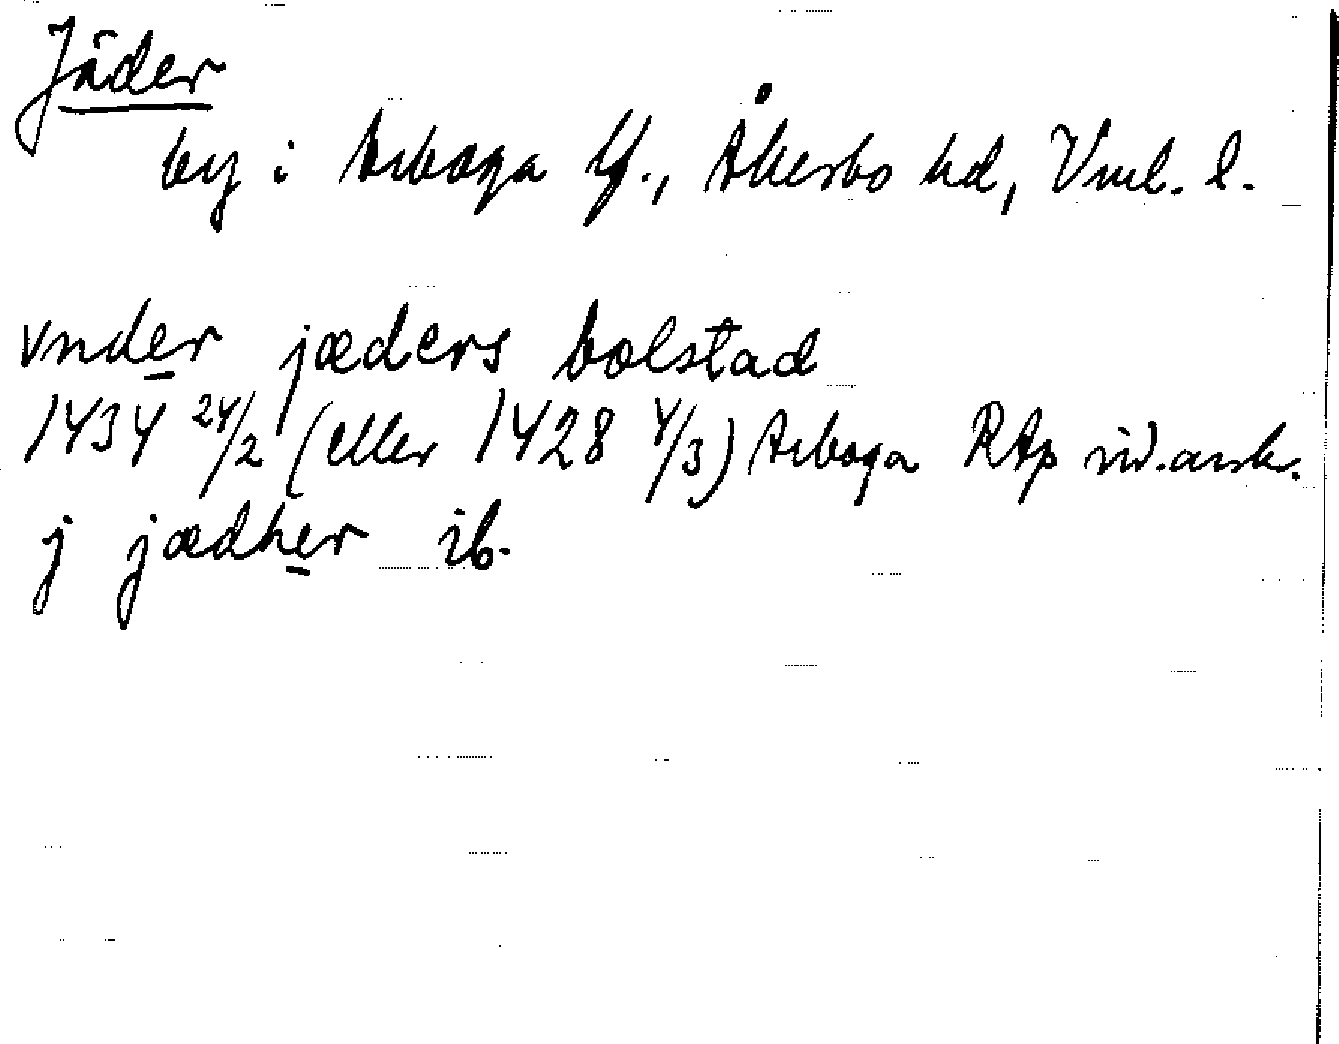 Jäder
by i Arboga lf., Åkerbo hd, Vml. l.
vnder jæders bolstad
1434 24/2 (eller 1428 4/3) Arboga RAp
j jædher ib.